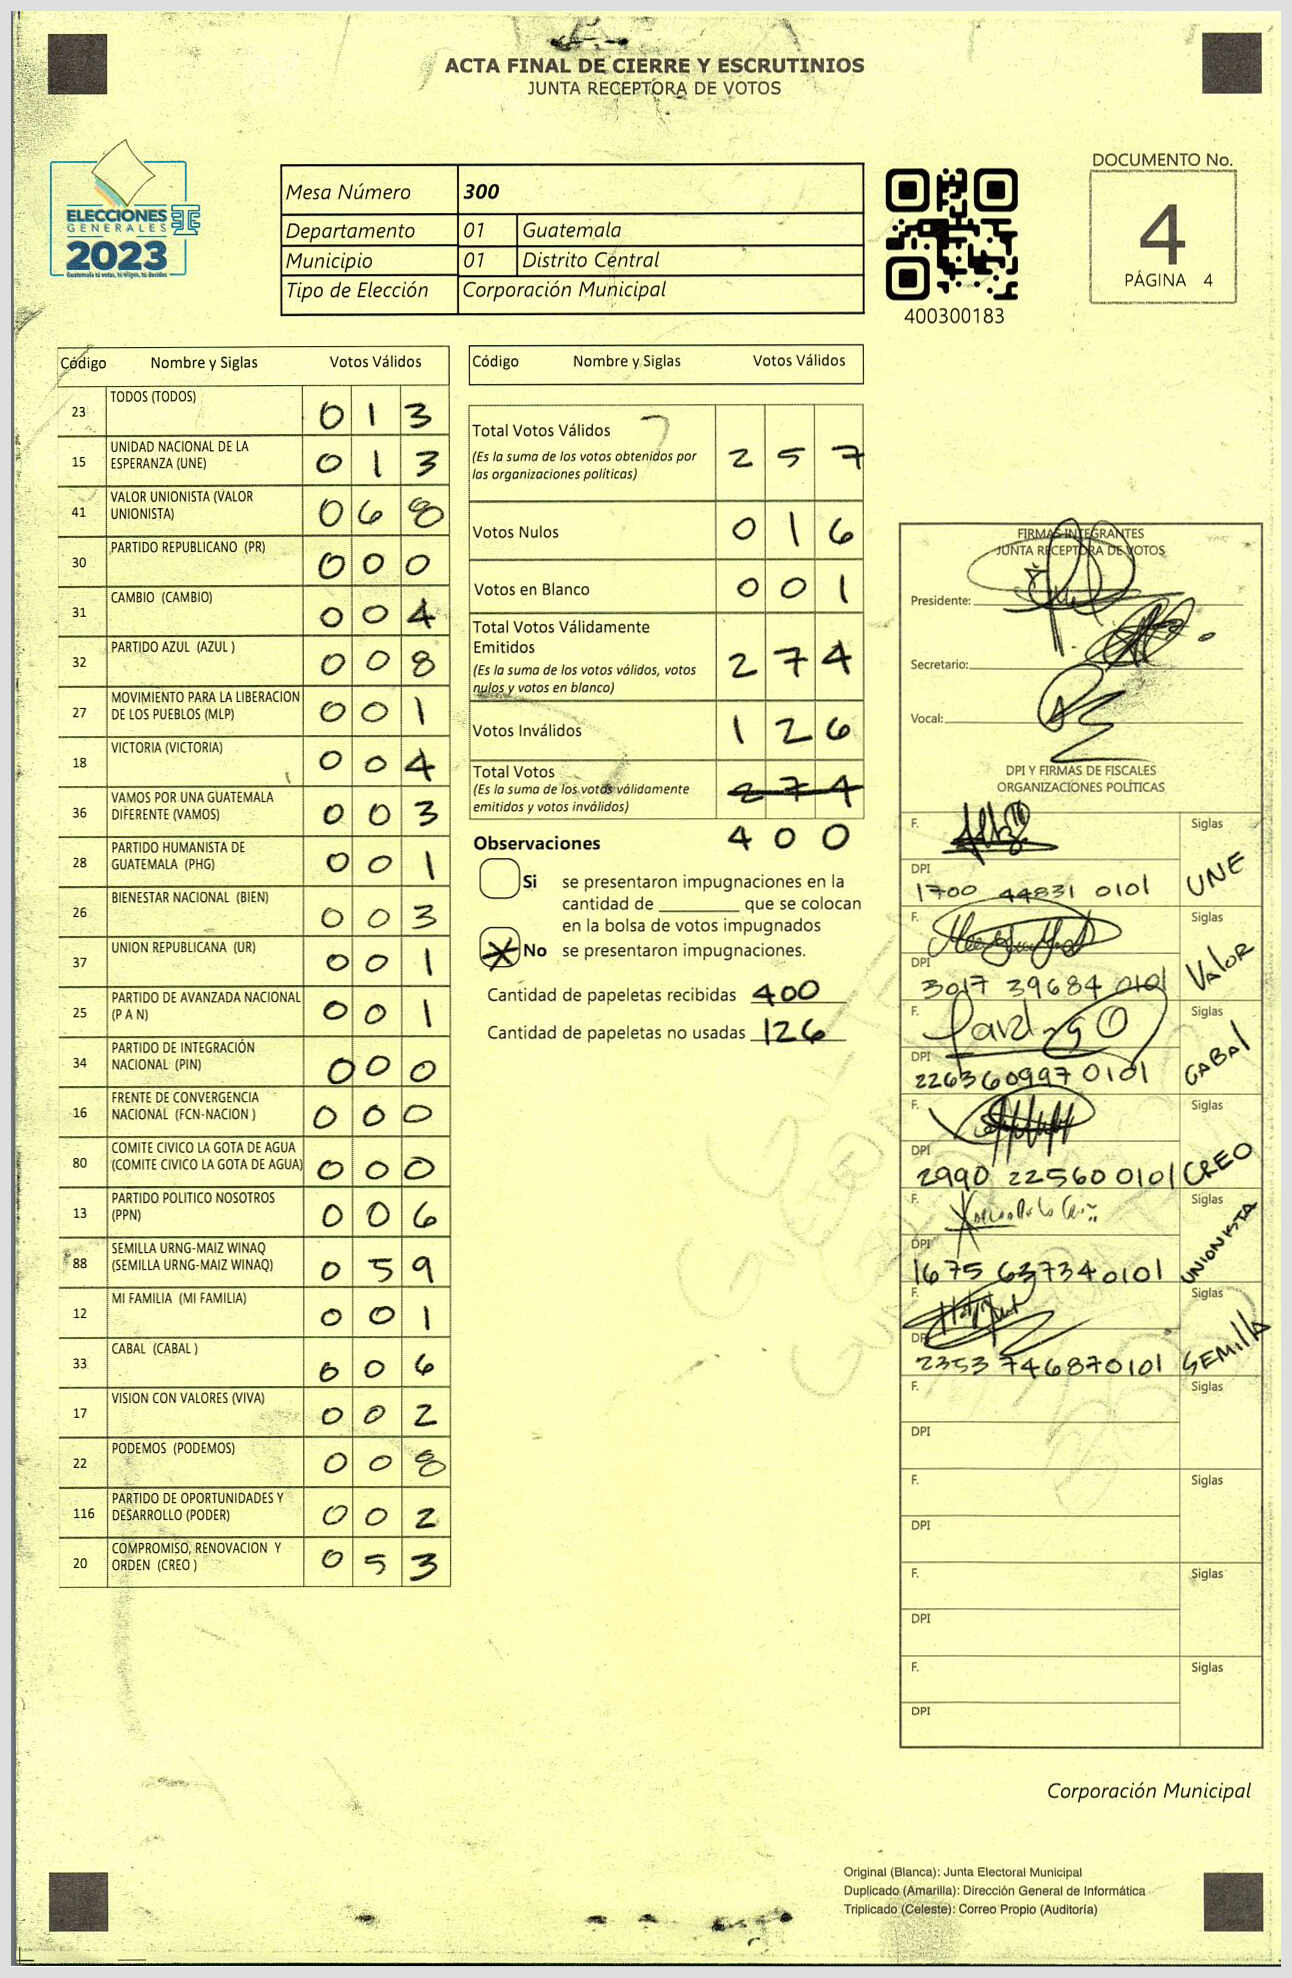 ACTA FINAL DE CIERRE Y ESCRUTINIOS
JUNTA RECEPTORA DE VOTOS
ELECCIONES
GENERALES
2023
Guatemala tú votas, tú eliges, tú decides
Mesa Número 300
Departamento 01 Guatemala
Municipio 01 Distrito Central
Tipo de Elección Corporación Municipal
400300183
DOCUMENTO No.
4
PÁGINA 4
Código Nombre y Siglas Votos Válidos
23 TODOS (TODOS) 0 1 3
15 UNIDAD NACIONAL DE LA
ESPERANZA (UNE) 0 1 3
41 VALOR UNIONISTA (VALOR
UNIONISTA) 0 6 8
30 PARTIDO REPUBLICANO (PR) 0 0 0
31 CAMBIO (CAMBIO) 0 0 4
32 PARTIDO AZUL (AZUL ) 0 0 8
27 MOVIMIENTO PARA LA LIBERACION
DE LOS PUEBLOS (MLP) 0 0 1
18 VICTORIA (VICTORIA) 0 0 4
36 VAMOS POR UNA GUATEMALA
DIFERENTE (VAMOS) 0 0 3
28 PARTIDO HUMANISTA DE
GUATEMALA (PHG) 0 0 1
26 BIENESTAR NACIONAL (BIEN) 0 0 3
37 UNION REPUBLICANA (UR) 0 0 1
25 PARTIDO DE AVANZADA NACIONAL
(P A N) 0 0 1
34 PARTIDO DE INTEGRACIÓN
NACIONAL (PIN) 0 0 0
16 FRENTE DE CONVERGENCIA
NACIONAL (FCN-NACION ) 0 0 0
80 COMITE CIVICO LA GOTA DE AGUA
(COMITE CIVICO LA GOTA DE AGUA) 0 0 0
13 PARTIDO POLITICO NOSOTROS
(PPN) 0 0 6
88 SEMILLA URNG-MAIZ WINAQ
(SEMILLA URNG-MAIZ WINAQ) 0 5 9
12 MI FAMILIA (MI FAMILIA) 0 0 1
33 CABAL (CABAL ) 0 0 6
17 VISION CON VALORES (VIVA) 0 0 2
22 PODEMOS (PODEMOS) 0 0 8
116 PARTIDO DE OPORTUNIDADES Y
DESARROLLO (PODER) 0 0 2
20 COMPROMISO, RENOVACION Y
ORDEN (CREO ) 0 5 3
Código Nombre y Siglas Votos Válidos
Total Votos Válidos
(Es la suma de los votos obtenidos por
las organizaciones políticas) 2 5 7
Votos Nulos 0 1 6
Votos en Blanco 0 0 1
Total Votos Válidamente
Emitidos
(Es la suma de los votos válidos, votos
nulos y votos en blanco) 2 7 4
Votos Inválidos 1 2 6
Total Votos
(Es la suma de los votos válidamente
emitidos y votos inválidos) 2 7 4
4 0 0
Observaciones
Si se presentaron impugnaciones en la
cantidad de ________ que se colocan
en la bolsa de votos impugnados
No se presentaron impugnaciones.
Cantidad de papeletas recibidas 400
Cantidad de papeletas no usadas 126
FIRMAS INTEGRANTES
JUNTA RECEPTORA DE VOTOS
Presidente:
Secretario:
Vocal:
DPI Y FIRMAS DE FISCALES
ORGANIZACIONES POLÍTICAS
F. Siglas
DPI
1700 44831 0101 UNE
F. Siglas
DPI
3017 39684 0101 Valor
F. Siglas
DPI
2263609970101 CABAL
F. Siglas
DPI
2990 22560 0101 CREO
F. Siglas
DPI
1675 63734 0101 UNIONISTA
F. Siglas
DPI
2353 746870101 SEMIllA
F. Siglas
DPI
F. Siglas
DPI
F. Siglas
DPI
F. Siglas
DPI
Corporación Municipal
Original (Blanca): Junta Electoral Municipal
Duplicado (Amarilla): Dirección General de Informática
Triplicado (Celeste): Correo Propio (Auditoría)